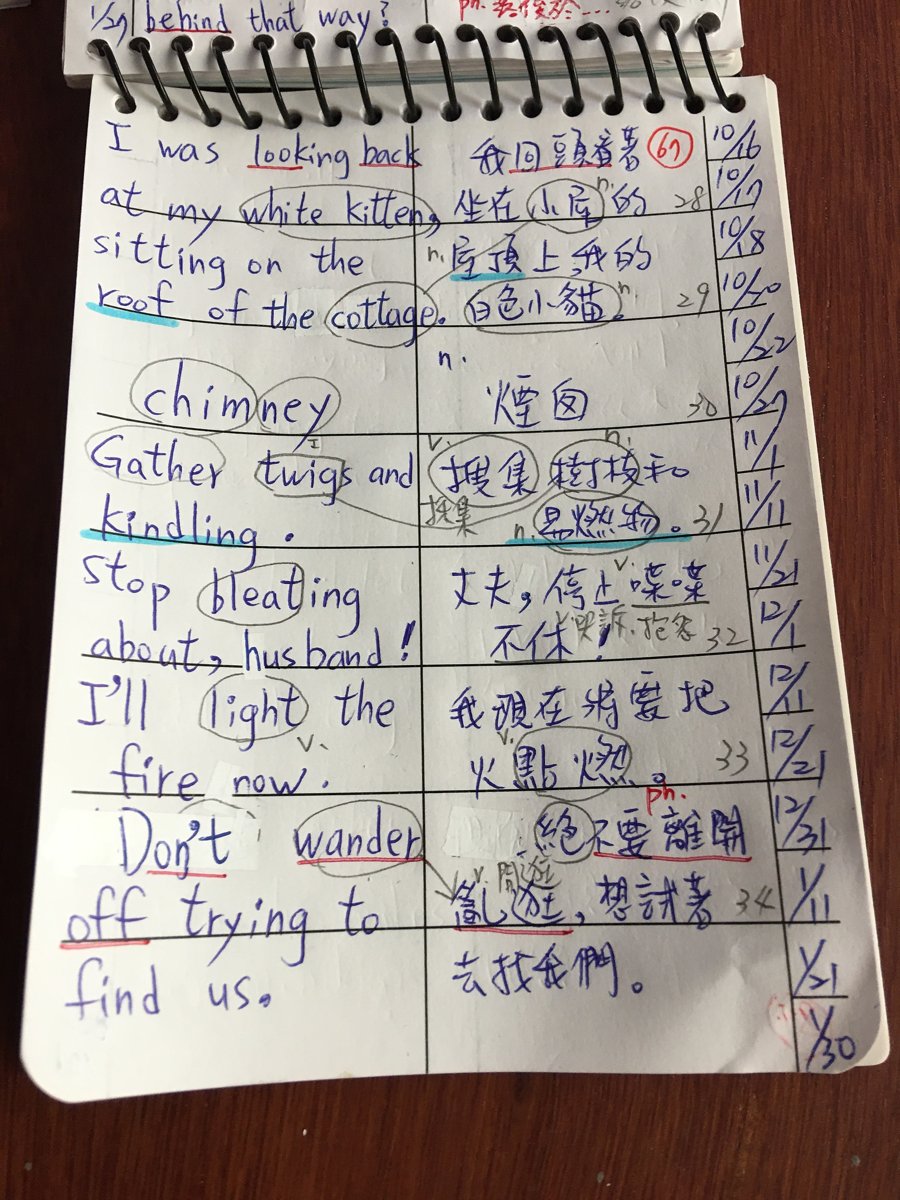 1/29 behind that way?
ph.
I was looking back 我回頭看著 67 10/16
at my white kitten, 坐在小屋n.的 28 10/17
sitting on the n.屋頂上,我的 10/18
roof of the cottage. 白色小貓n.。 29 10/20
n. 10/22
chimney 煙囪 30 10/27
Gather twigs and v. 搜集 n. 樹枝和 11/1
採集
kindling. n.易燃物。31 11/11
stop bleating 丈夫,停止v.喋喋 11/21
about, husband! 不休! v.哭訴、抱怨 32 12/1
I'll light the 我現在將要把 12/11
v. fire now. 火v.點燃。 33 12/21
ph.
Don't wander 絕不要離開 12/31
v. 閒逛
off trying to 亂逛,想試著 34 1/11
find us. 去找我們。 1/21
1/30